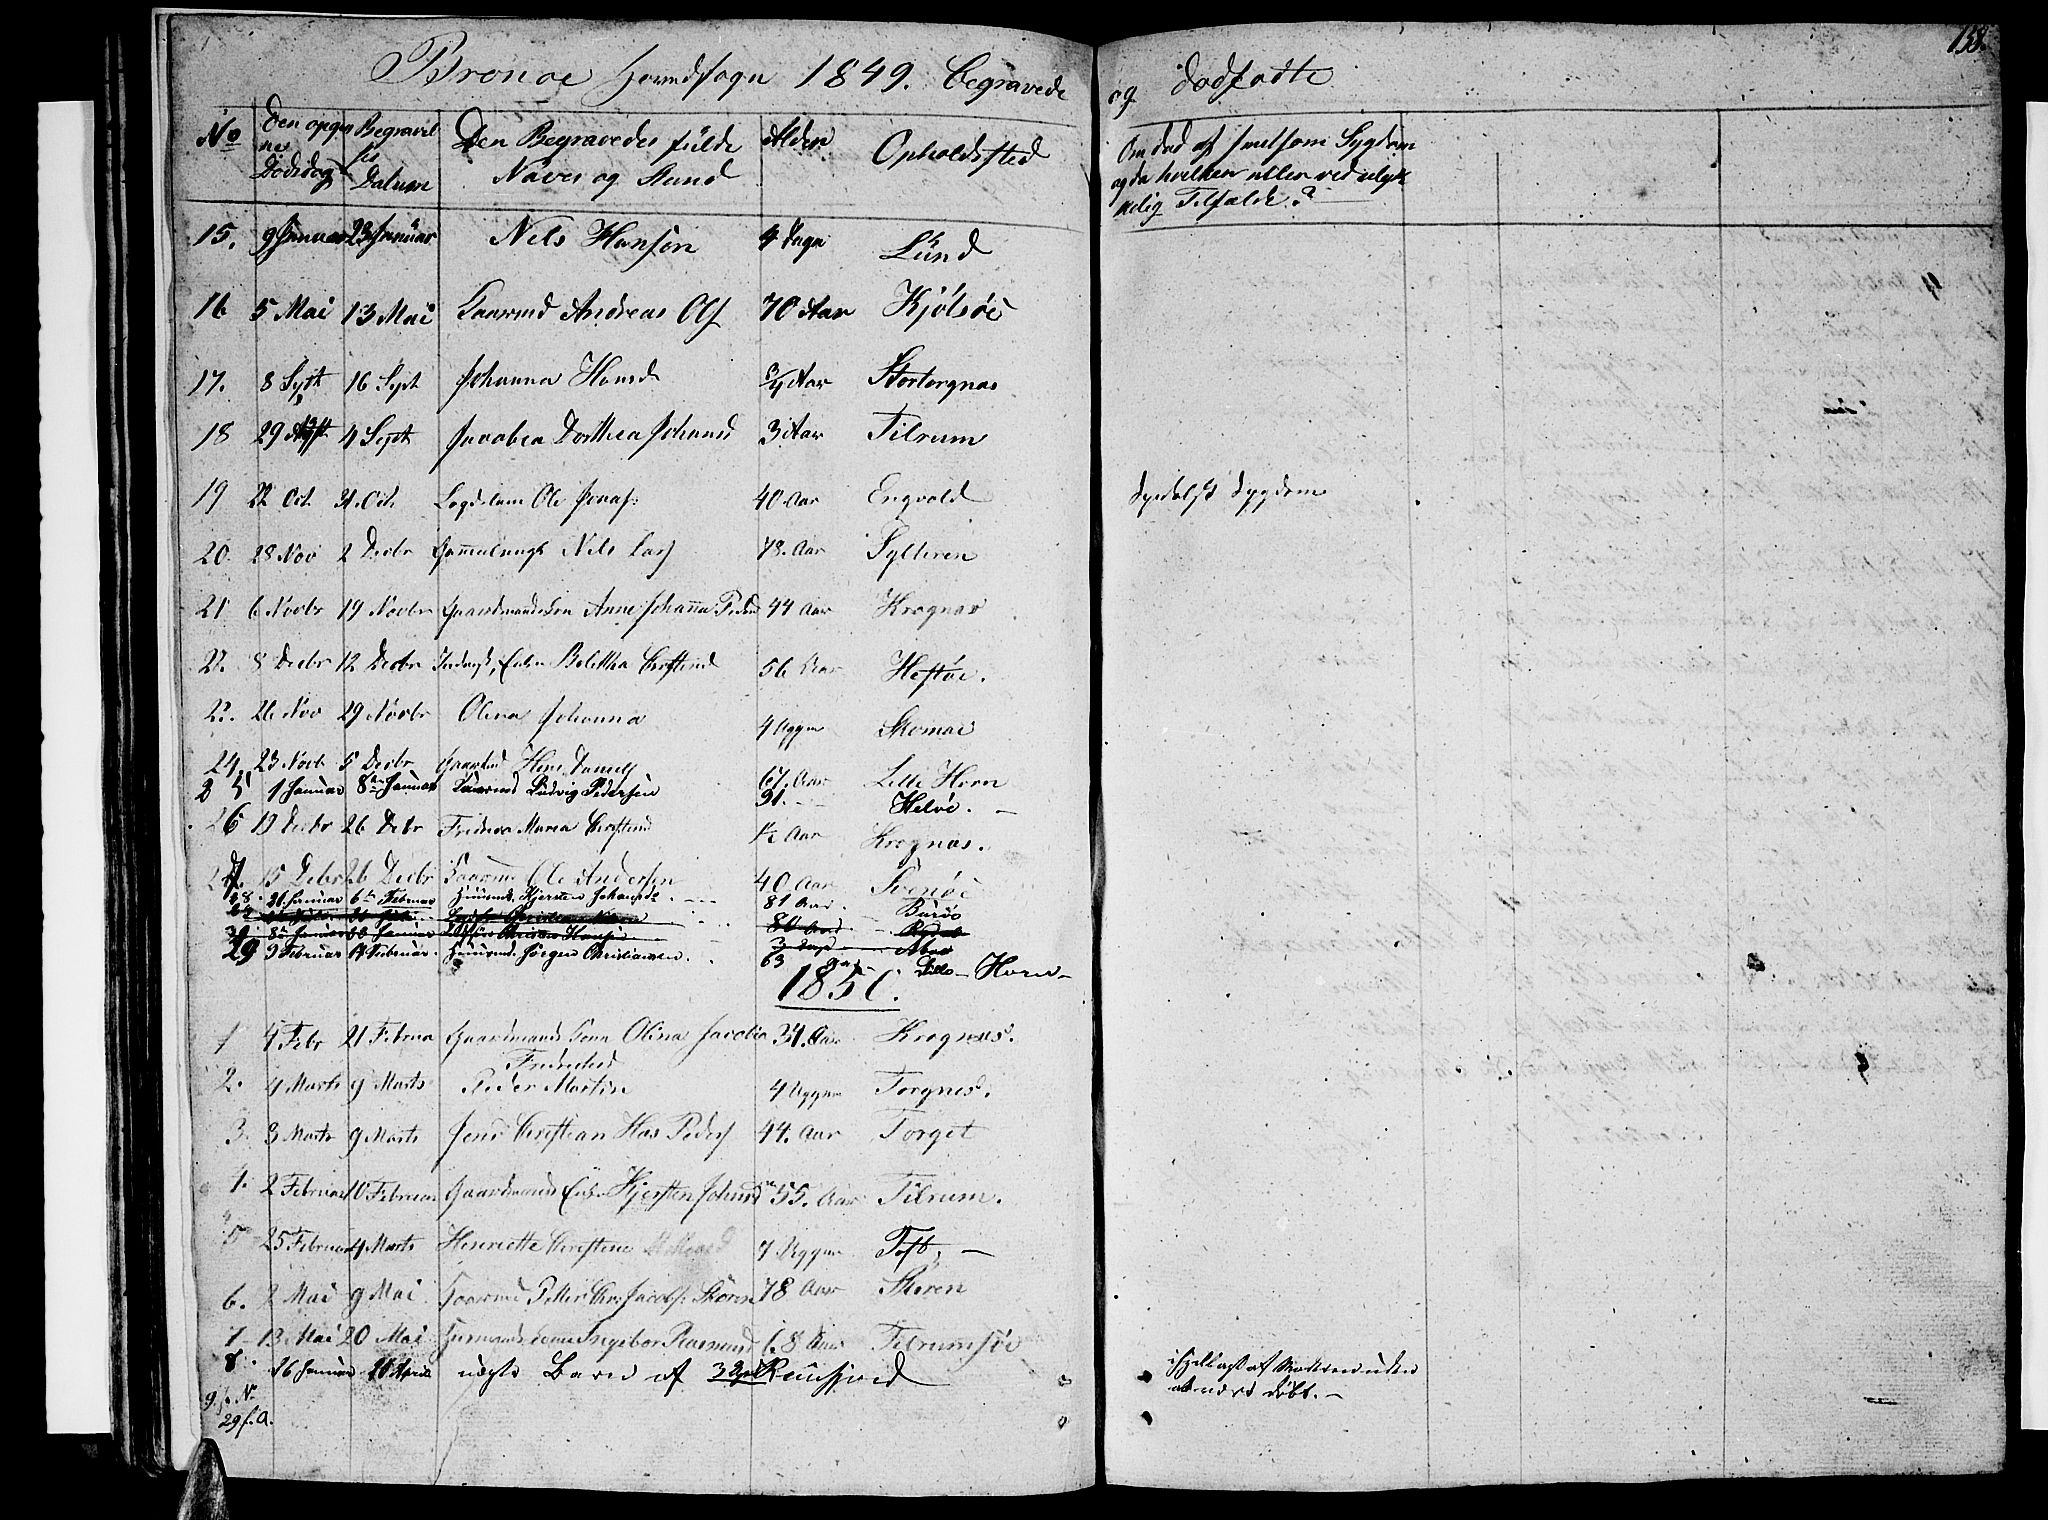 Brønøe Hovedsogn 1849. Begravede
og dødfødte
138.
No
Den opgivne Dødsdag
Begravelses Datum
Den Begravedes fulde Navn og Stand
Alder
Opholdssted
Om død af smitsom Sygdom og da hvilken eller ved ulykkelig Tilfælde?
15. 9 Januar 23 Januar Nels Hansøn 4 Dage Lund
16 5 Mai 13 Mai Andreas Ols 70 Aar Kjølsøe
17. 8 Sept 16 Sept Johanna Hansd 3/4 Aar Stortorgnæs
18 29 4 Sept Jacobea Dorthea Johansd 3 Aar Tilrum
19 22 Oct. 31 Oct. Ole Jonas: 40 Aar Engvold Spedalsk Sygdom
20. 28 Nov 2 Decbr Nels Lars 78. Aar Sylteren
21 6 Novbr 19 Novbr Gaardmandskon Anne Johanna Pedersd 44 Aar Krognæs
22. 8 Decbr 12 Decbr Enke Bolettha Christensd 56 Aar Hestøe.
23. 26 Nov 29 Novbr Olena Johanna 4 Uger Skomoe
24. 23 Novb 5 Decbr Hans Daniels 67. Aar Lille Horn
25 1 Januar 8de Januar Ludvig Pedersen 91. - - Heløe. —
26 19 Decbr 26 Decbr Maren Christensd 1 1/2 Aar Krognæs.
27. 15 Decbr 26 Decbr Ole Andersen 40 Aar Svenøe
28. 21 Januar 6te Februar Huusmd. Kjersten Johansd. 81 Aar. Burøe
29 9 Februar 17 Februar. Huusmd. Jørgen Christiansen. 63 Aar Lille - Horn -
1850.
1 4 Febr 21 Februa Gaardmands Kone Olina Jacobia 34. Aar Krognæs.
Fredriksd
2. 4 Marts 9 Marts Peder Martin 4 Uger Torgnes.
3. 3 Marts 9 Marts Jens Christian Has Peders 44. Aar Torget
4. 2 Februar 10 Februar Gaardmands Enke Kjersten Johansd 55. Aar Tilrum.
5 25 Februar 4 Marts Henriette Christene 7 Uger Toft, —
6. 2 Mai 9 Mai Petter Chr: Jacobs: Skoren 78 Aar Skoren
7 13 Mai 20 Mai Ingebor Rasmusd 68 Aar Tilrumsøe
8. 26 Januar 10 April uægte Barn af Reinfjord ihjellagt af Moderen uden at være døbt. —
9. s. No 29 f. A.